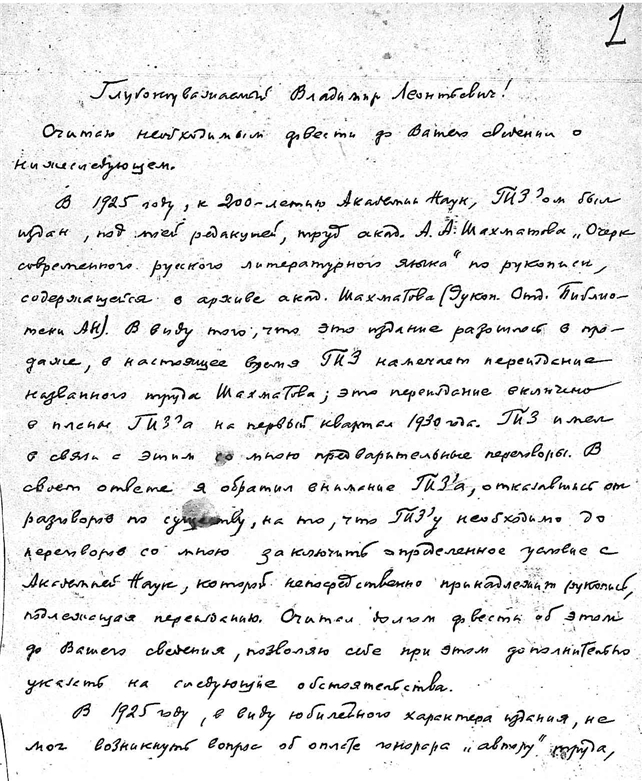 1
Глубокоуважаемый Владимир Леонтьевич!
Считаю необходимым довести до Вашего сведения о
нижеследующем.
В 1925 году, к 200-летию Академии Наук, ГИЗ'ом был
издан, под моей редакцией, труд акад. А. А. Шахматова „Очерк
современного русского литературного языка" по рукописи,
содержащейся в архиве акад. Шахматова (Рукоп. Отд. Библио-
теки АН). В виду того, что это издание разошлось в про-
даже, в настоящее время ГИЗ намечает переиздание
названного труда Шахматова; это переиздание включено
в планы ГИЗ'а на первый квартал 1930 года. ГИЗ имел
в связи с этим со мною предварительные переговоры. В
своем ответе я обратил внимание ГИЗ'а, отказавшись от
разговоров по существу, на то, что ГИЗ'у необходимо до
переговоров со мною заключить определенное условие с
Академией Наук, которой непосредственно принадлежит рукопись,
подлежащая переизданию. Считая долгом довести об этом
до Вашего сведения, позволяю себе при этом дополнительно
указать на следующие обстоятельства.
В 1925 году, в виду юбилейного характера издания, не
мог возникнуть вопрос об оплате гонорара „автору" труда,